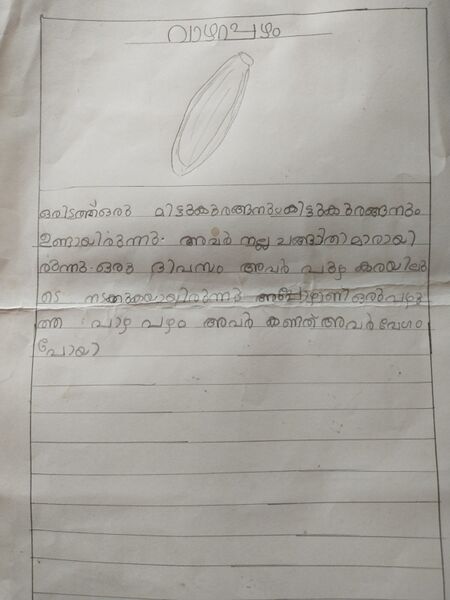 വാഴപ്പഴം
ഒരിടത്ത് ഒരു മിട്ടുകുരങ്ങനും കിട്ടുകുരങ്ങനും
ഉണ്ടായിരുന്നു. അവർ നല്ല ചങ്ങാതിമാരായി
രുന്നു. ഒരു ദിവസം അവർ പുഴ കരയിലൂ
ടെ നടക്കുകയായിരുന്നു അപ്പോഴാണ് ഒരു പഴു
ത്ത വാഴ പഴം അവർ കണ്ടത് അവർ വേഗം
പോയി